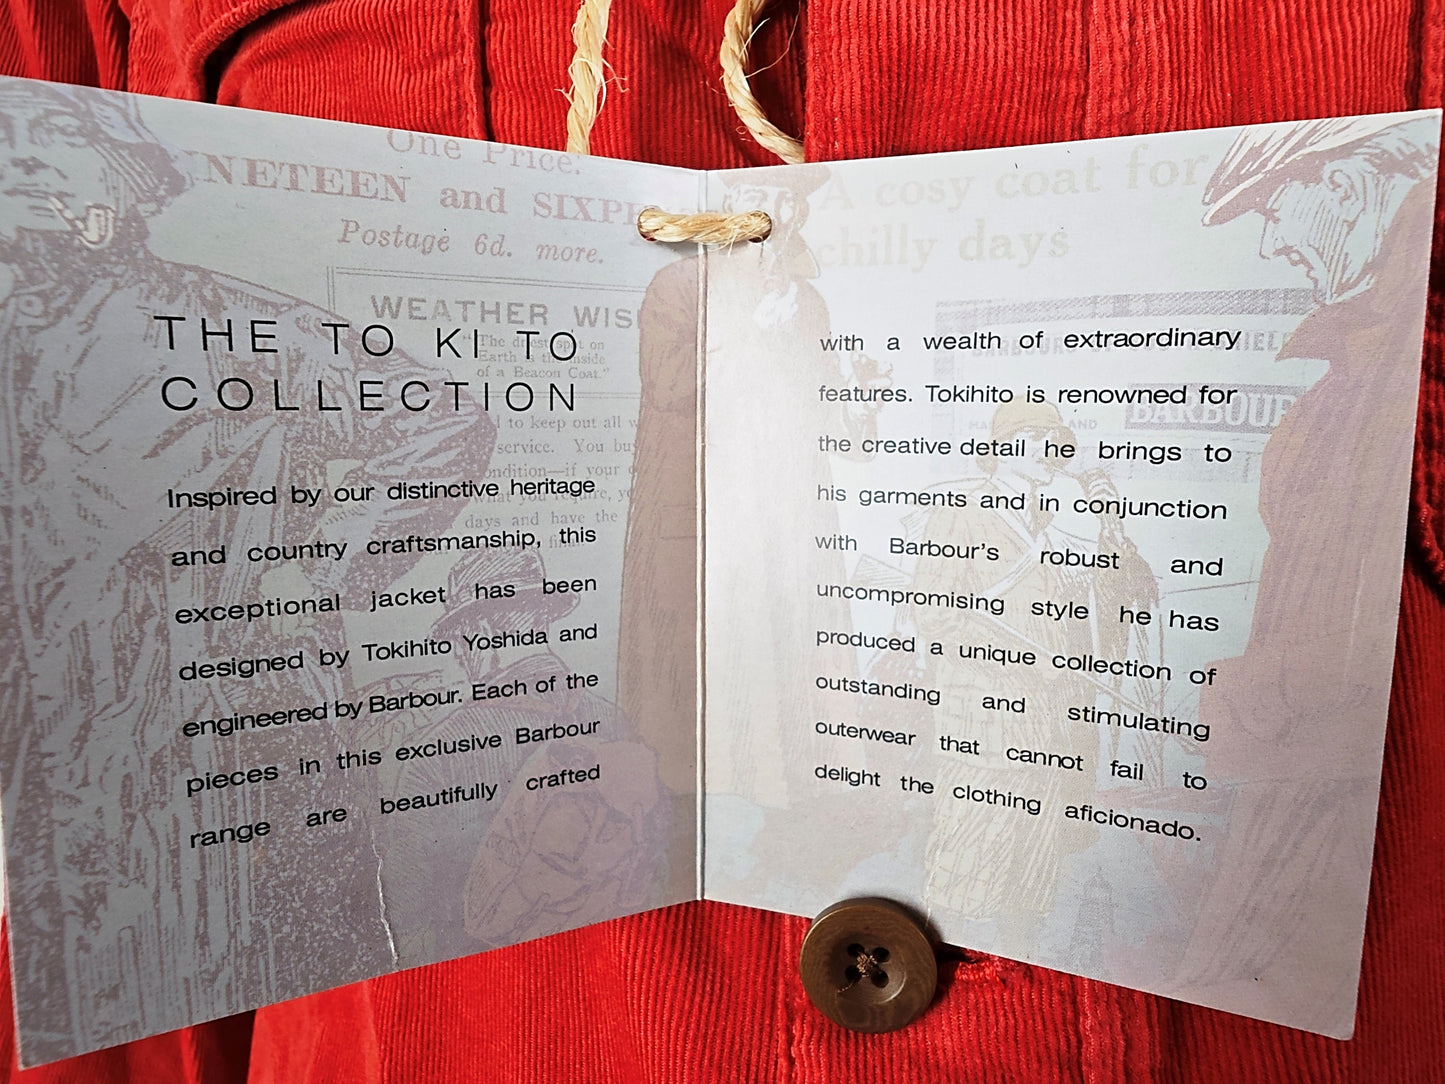 One Price.
NETEEN and SIXP
Postage 6d. more.
WEATHER WIS
"The driest spot on
Earth is the inside
of a Beacon Coat."
to keep out all
service. You buy
ondition—if your
days and have the
THE TO KI TO
COLLECTION
Inspired by our distinctive heritage
and country craftsmanship, this
exceptional jacket has been
designed by Tokihito Yoshida and
engineered by Barbour. Each of the
pieces in this exclusive Barbour
range are beautifully crafted
A cosy coat for
chilly days
BARBOUR
with a wealth of extraordinary
features. Tokihito is renowned for
the creative detail he brings to
his garments and in conjunction
with Barbour's robust and
uncompromising style he has
produced a unique collection of
outstanding and stimulating
outerwear that cannot fail to
delight the clothing aficionado.